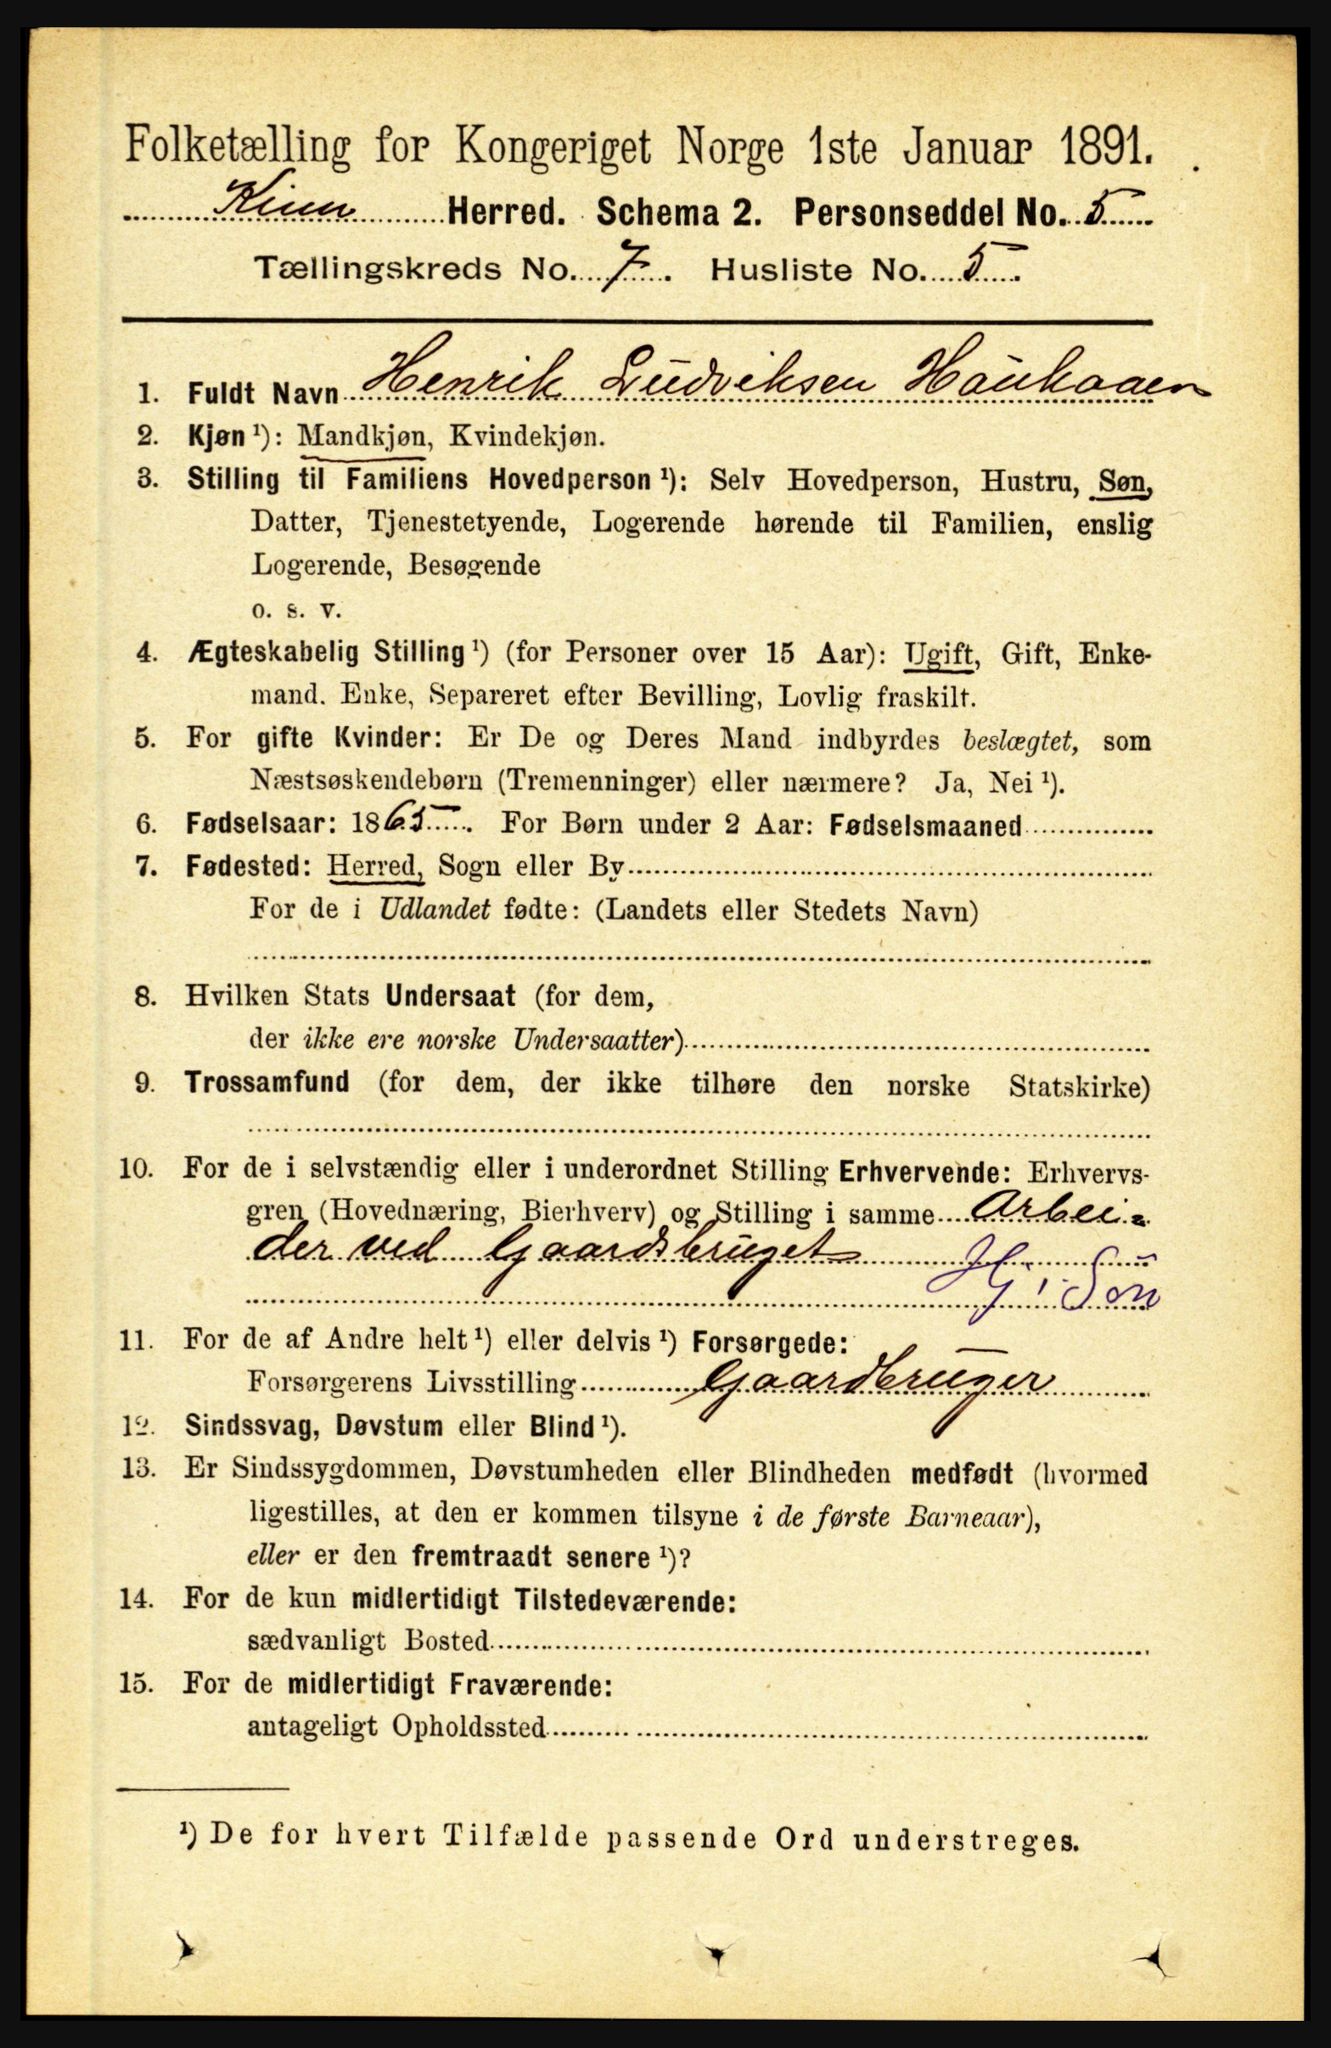 Folketælling for Kongeriget Norge 1ste Januar 1891.
Kinn Herred. Schema 2. Personseddel No. 5
Tællingskreds No. 7. Husliste No. 5.
1. Fuldt Navn Henrik Ludviksen Haukaaen
2. Kjøn ¹): Mandkjøn, Kvindekjøn.
3. Stilling til Familiens Hovedperson ¹): Selv Hovedperson, Hustru, Søn,
Datter, Tjenestetyende, Logerende hørende til Familien, enslig
Logerende, Besøgende
o. s. v.
4. Ægteskabelig Stilling ¹) (for Personer over 15 Aar): Ugift, Gift, Enke-
mand. Enke, Separeret efter Bevilling, Lovlig fraskilt.
5. For gifte Kvinder: Er De og Deres Mand indbyrdes beslægtet, som
Næstsøskendebørn (Tremenninger) eller nærmere? Ja, Nei ¹).
6. Fødselsaar: 1865. For Børn under 2 Aar: Fødselsmaaned
7. Fødested: Herred, Sogn eller By
For de i Udlandet fødte: (Landets eller Stedets Navn)
8. Hvilken Stats Undersaat (for dem,
der ikke ere norske Undersaatter)
9. Trossamfund (for dem, der ikke tilhøre den norske Statskirke)
10. For de i selvstændig eller i underordnet Stilling Erhvervende: Erhvervs-
gren (Hovednæring, Bierhverv) og Stilling i samme Arbei-
der ved Gaardsbruget
Hj. Søn
11. For de af Andre helt ¹) eller delvis ¹) Forsørgede:
Forsørgerens Livsstilling Gaardbruger
12. Sindssvag, Døvstum eller Blind ¹).
13. Er Sindssygdommen, Døvstumheden eller Blindheden medfødt (hvormed
ligestilles, at den er kommen tilsyne i de første Barneaar),
eller er den fremtraadt senere ¹)?
14. For de kun midlertidigt Tilstedeværende:
sædvanligt Bosted
15. For de midlertidigt Fraværende:
antageligt Opholdssted
¹) De for hvert Tilfælde passende Ord understreges.